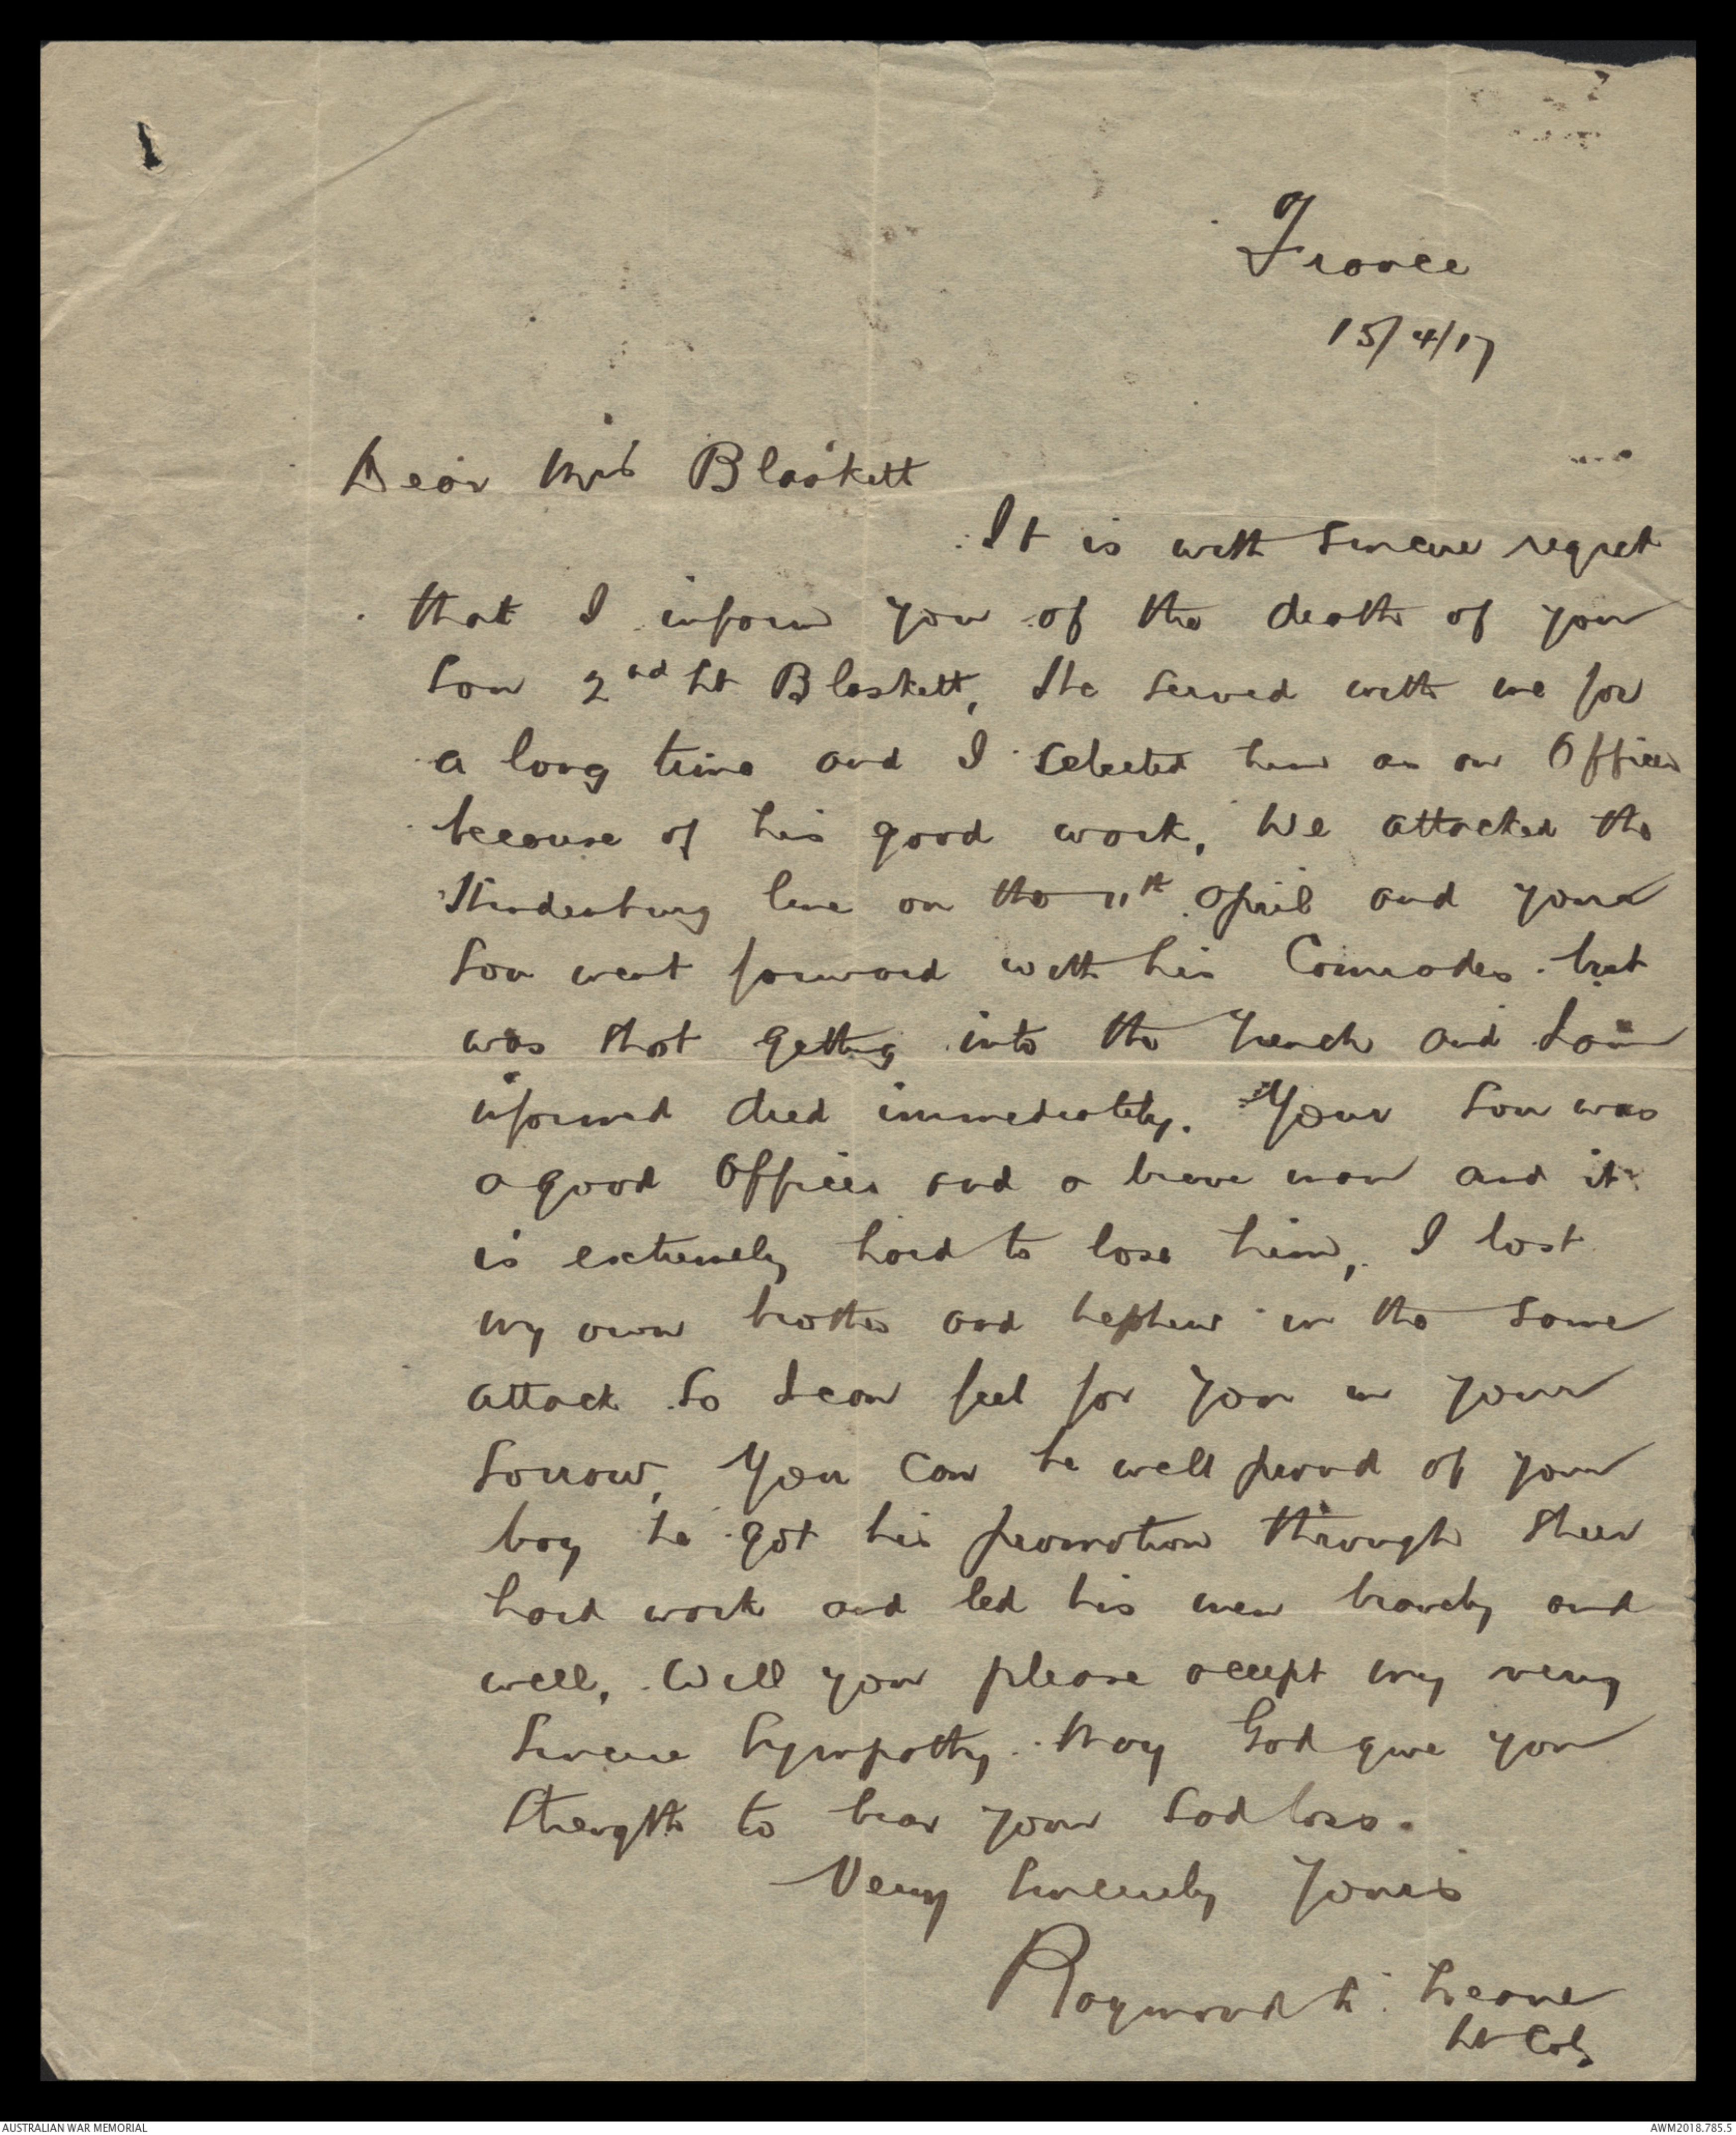 France
15/4/17
Dear Mrs Blaskett
It is with sincere regret
that I inform you of the death of your
son 2nd Lt Blaskett, He served with me for
a long time and I selected him as an Officer
because of his good work, We attacked the
Hindenburg line on the 11th April and your
son went forward with his Comrades but
was shot getting into the trench and I am
informed died immediately. Your son was
a good Officer and a brave man and it
is extremely hard to lose him, I lost
my own brother and nephew in the same
attack so I can feel for you in your
sorrow, You can be well proud of your
boy he got his promotion through sheer
hard work and led his men bravely and
well, Will you please accept my very
sincere sympathy. May God give you
strength to bear your sad loss.
Very sincerely yours
Raymond L. Leane
Lt Col
AUSTRALIAN WAR MEMORIAL
AWM2018.785.5